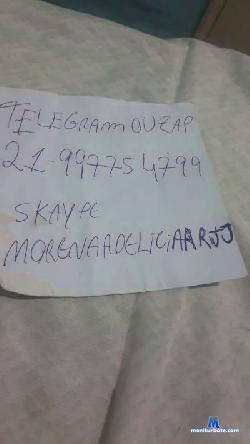 TELEGRAM OU ZAP
21-997754799
SKAYPE
MORENAADELICiAARRJJ
moniturbate.com